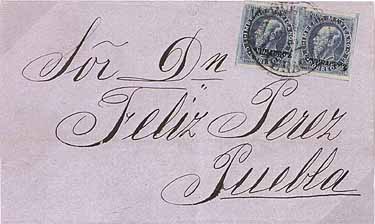 Sõr Dn
Feliz Perez
Puebla